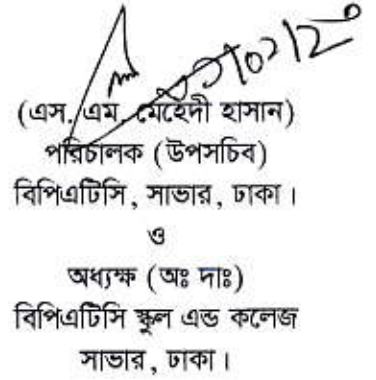 (এস, এম, মেহেদী হাসান)
পরিচালক (উপসচিব)
বিপিএটিসি, সাভার, ঢাকা।
ও
অধ্যক্ষ (অঃ দাঃ)
বিপিএটিসি স্কুল এন্ড কলেজ
সাভার, ঢাকা।